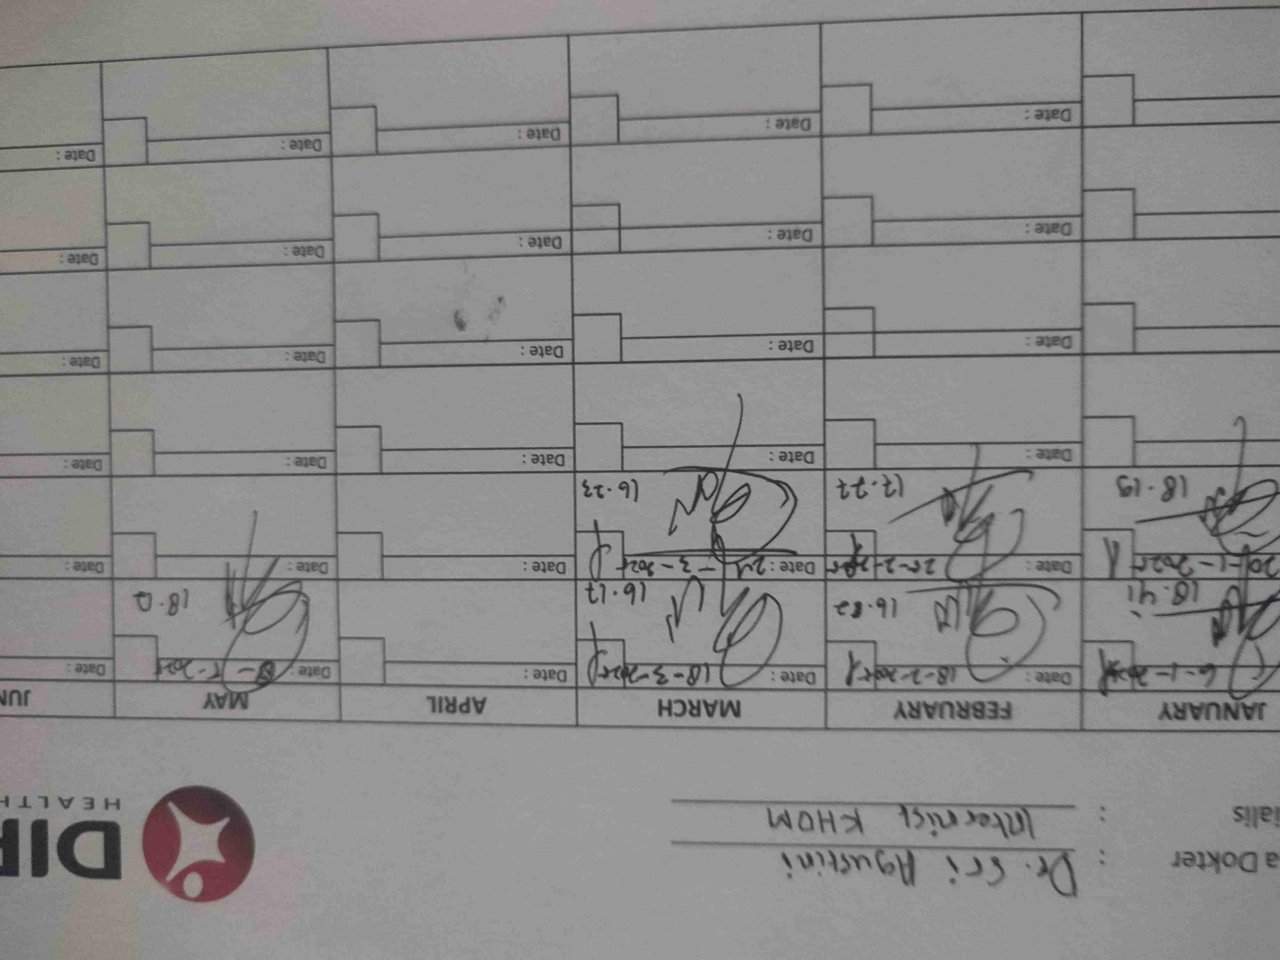 a Dokter : Dr. Sri Agustini
ialis : Internist KHOM
DIP
HEALTH
JANUARY FEBRUARY MARCH APRIL MAY JUN
6-1-2025 Date : 18-2-2025 Date : 18-3-2025 Date : Date : Date :
18.41 16.17
20-1-2025 Date : 25-2-2025 Date : 24-3-2025 Date : Date : Date :
18.19 17.27 16.23
Date : Date : Date : Date : Date :
Date : Date : Date : Date : Date :
Date : Date : Date : Date : Date :
Date : Date : Date : Date : Date :